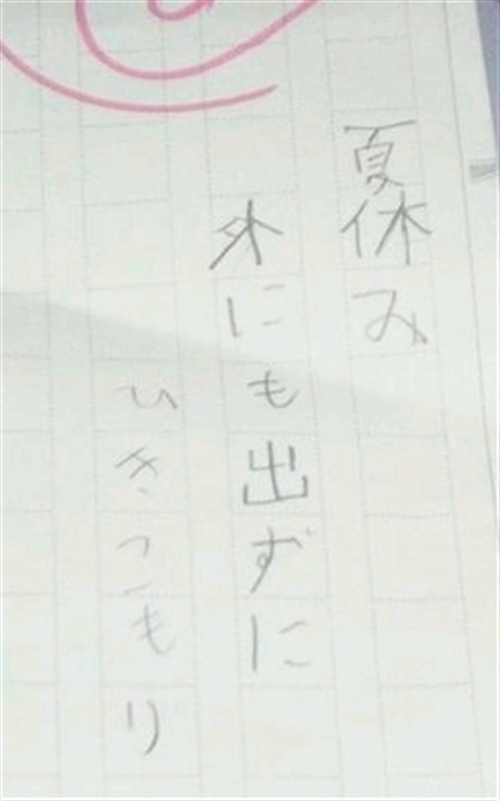 夏休み
外にも出ずに
ひきこもり